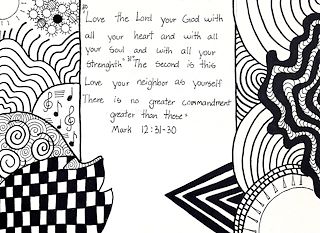 30
"Love the Lord your God with
all your heart and with all
your Soul and with all your
Strenghth" 31"The second is this
Love your neighbor as yourself
There is no greater commandment
greater than these"
Mark 12:31-30